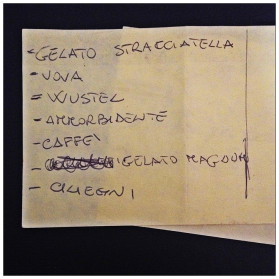 - GELATO STRACCIATELLA
- UOVA
= WUSTEL
- AMMORBIDENTE
- CAFFE'
- GELATO MAGNUM
-